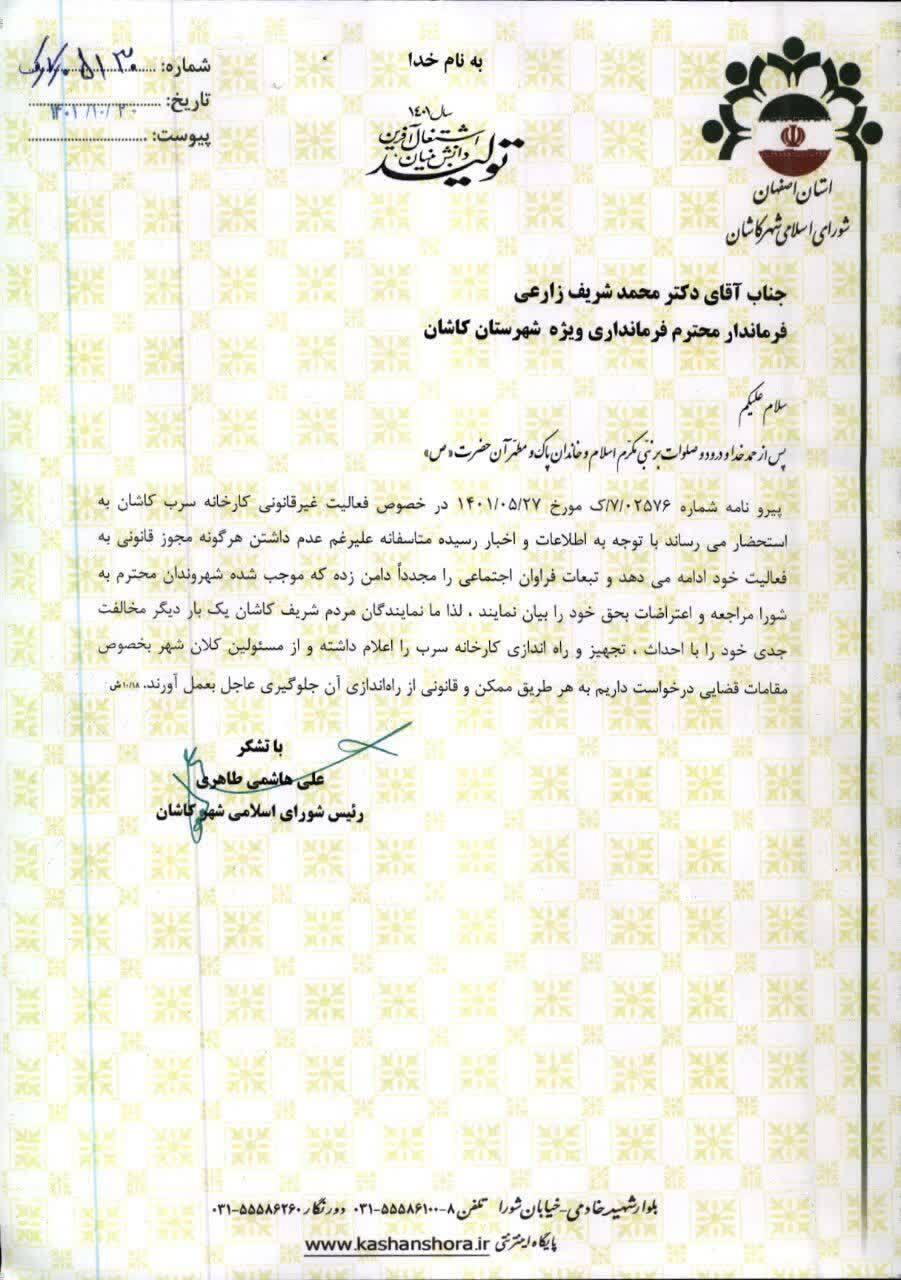 به نام خدا
شماره:
تاریخ: ۱۴۰۱/۱۰/۲۰
پیوست:
سال ۱۴۰۱
تولید
دانش بنیان
اشتغال آفرین
استان اصفهان
شورای اسلامی شهر کاشان
جناب آقای دکتر محمد شریف زارعی
فرماندار محترم فرمانداری ویژه شهرستان کاشان
سلام علیکم
پس از حمد خدا و درود و صلوات بر نبّی مکرّم اسلام و خاندان پاک و مطهّر آن حضرت «ص»
پیرو نامه شماره ۷/۰۲۵۷۶/ک مورخ ۱۴۰۱/۰۵/۲۷ در خصوص فعالیت غیرقانونی کارخانه سرب کاشان به
استحضار می رساند با توجه به اطلاعات و اخبار رسیده متاسفانه علیرغم عدم داشتن هرگونه مجوز قانونی به
فعالیت خود ادامه می دهد و تبعات فراوان اجتماعی را مجدداً دامن زده که موجب شده شهروندان محترم به
شورا مراجعه و اعتراضات بحق خود را بیان نمایند ، لذا ما نمایندگان مردم شریف کاشان یک بار دیگر مخالفت
جدی خود را با احداث ، تجهیز و راه اندازی کارخانه سرب را اعلام داشته و از مسئولین کلان شهر بخصوص
مقامات قضایی درخواست داریم به هر طریق ممکن و قانونی از راه‌اندازی آن جلوگیری عاجل بعمل آورند. ۱۰/۱۸ش
با تشکر
علی هاشمی طاهری
رئیس شورای اسلامی شهر کاشان
بلوار شهید خادمی - خیابان شورا تلفن ۸-۵۵۵۸۶۱۰۰-۰۳۱ دورنگار ۵۵۵۸۶۲۶۰-۰۳۱
پایگاه اینترنتی www.kashanshora.ir